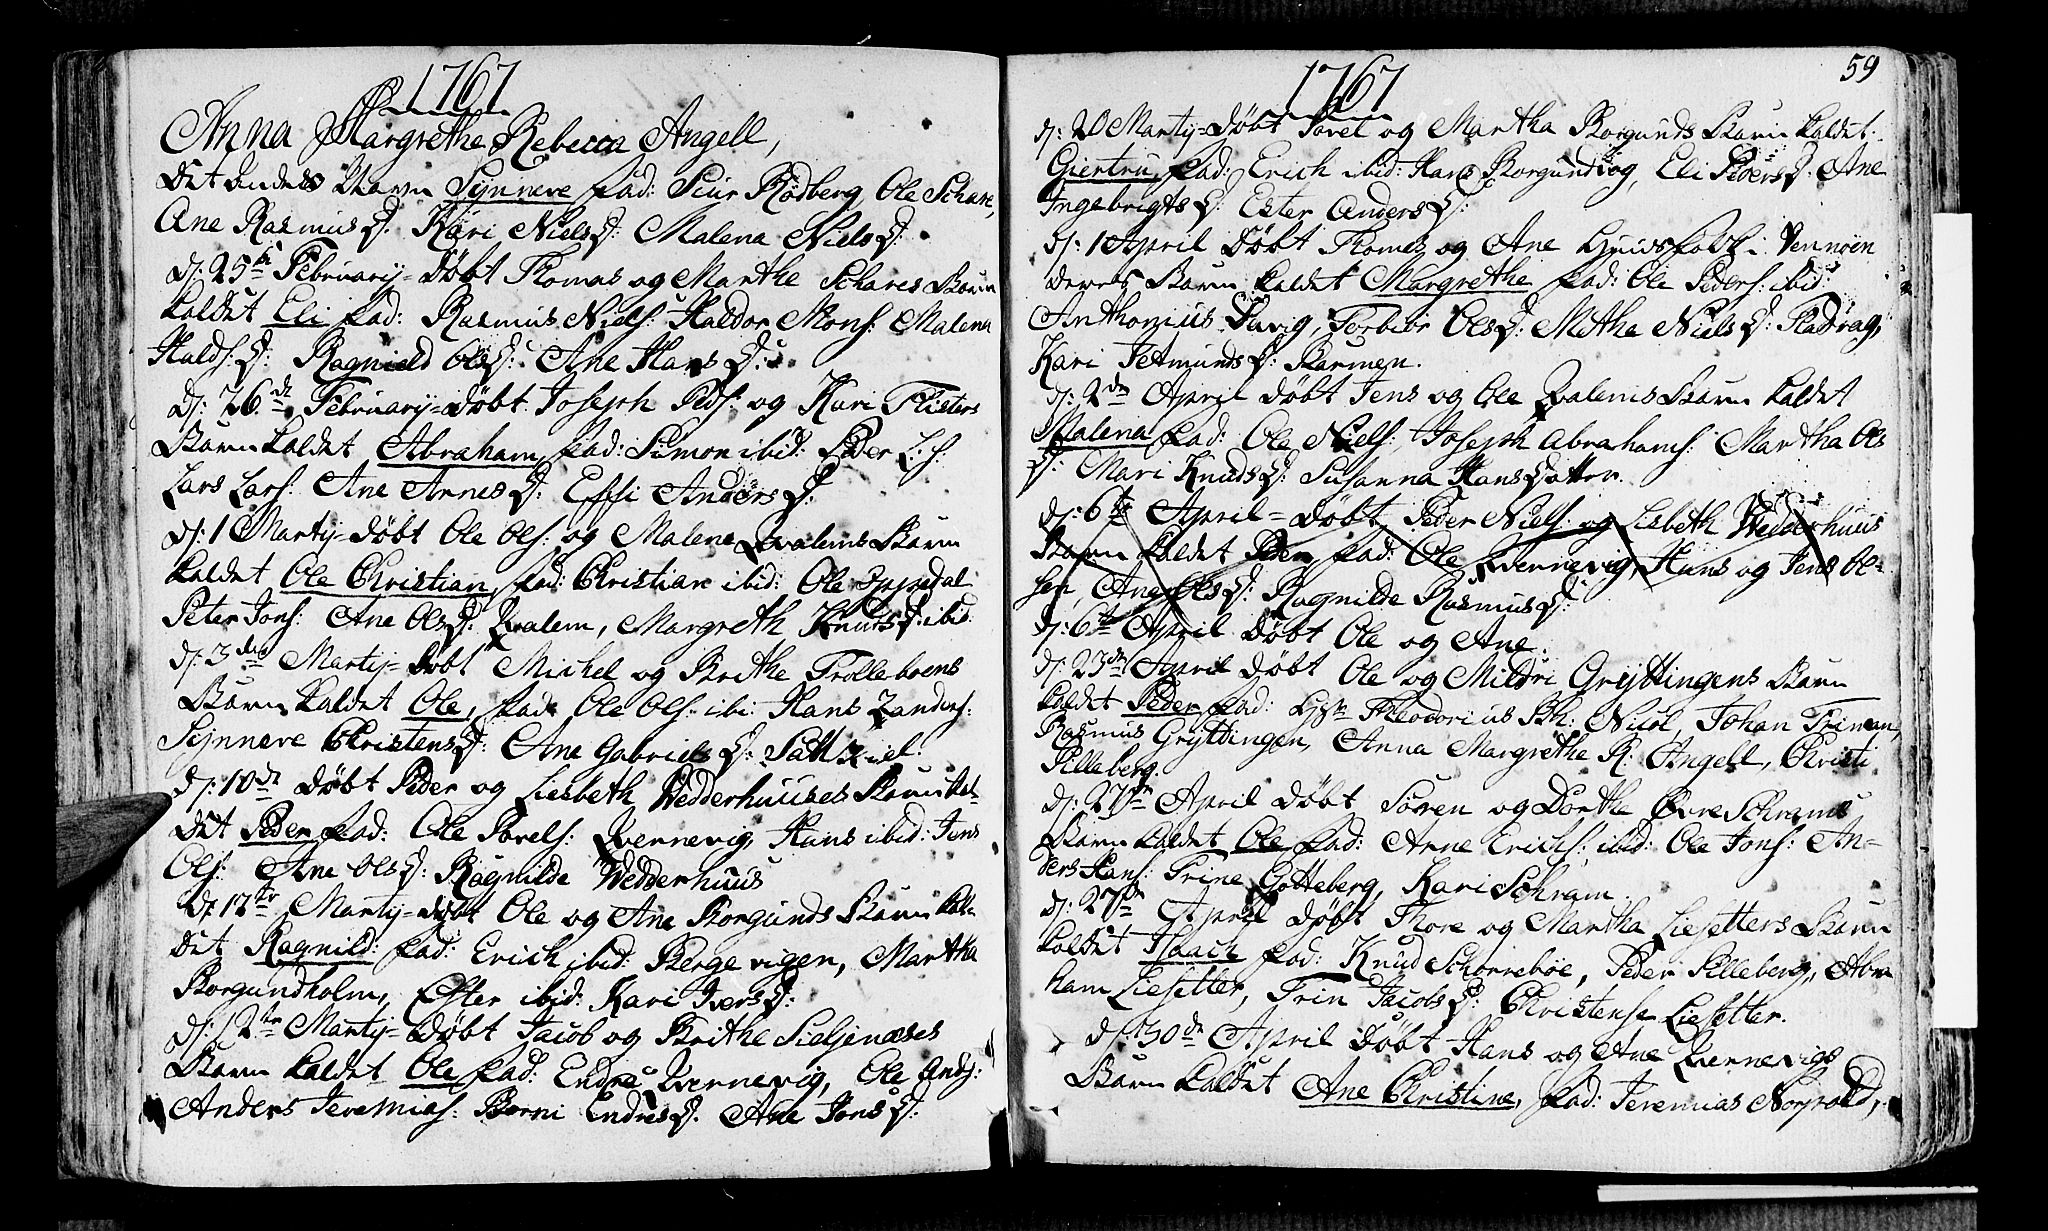 1767
Anna Margrethe Rebecca Angell,
Det andets Barn Synneve fad: Siur Rødberg, Ole Schare,
Ane Rasmus D: Kari Niels D: Malena Niels D:
D: 25 February = Døbt Thomas og Marthe Schares Barn
kaldet Eli fad: Rasmus Niels: Haldor Mons: Malena
Halds: D: Ragnield Ols D: Ane Hans D:
D: 26de February = Døbt Joseph Peds: og Kari Flisters
Barn kaldet Abraham, fad: Simon ibid: Peder L:s:
Lars Lars: Ane Arnes D: Effi Anders D:
D: 1 Martij = døbt Ole Ols: og Malene Qvalems Barn
kaldet Ole Christian, fad: Christian ibid: Ole
Peter Jons: Ane Ols D: Qvalem, Margreth Knuds D: ibid
D: 3die Martij = Døbt Michel og Brithe Trolleboens
Barn kaldet Ole, fad: Ole Ols: ibi: Hans Zanders:
Synneve Christens D: Ane Gabriels D:
D: 10de døbt Peder og Liesbeth Wedderhuuses Barn kal-
det Peder fad: Ole Povels: Qvernevig, Hans ibid: Jens
Ols: Ane Ols D: Ragnilde Wedderhuus
D: 12te Martij = døbt Ole og Ane Borgunds Barn kal-
det Ragnild: fad: Erich ibid: Berge vigen, Martha
Borgundholm, Ester ibid: Kari Ivers D:
D: 12te Martij = Døbt Jacob og Brithe Sieljenæses
Barn kaldet Ole fad: Endre Qvernevig, Ole Andj:
Anders Jeremias: Borni Endres D. Ane Jons D:
1767
59
D: 20 Martij = Døbt Povel og Martha Borgunds Barn kaldet
Giertru, fad: Erich ibid: Hans Borgundvog, Eli Peders D. Ane
Ingebrigts D: Ester Anders D:
D: 1 April Døbt Thomes og Ane i Vennøen
deres Barn kaldet Margrethe fad: Ole Peders: ibid:
Anthonius Torbiør Ols D: Methe Niels D: Fladvag,
Kari Jetmunds D: Barmen.
D: 2de April døbt Jens og Ole Qvalems Barn kaldet
Malena fad: Ole Niels:, Joseph Abrahams: Martha Ols
D: Mari Knuds D: Susanna Hans Datter.
D: 6te April = Døbt Peder Niels: og Lisbeth Wedderhuus
Barn kaldet Peder fad: Ole Qvernevig, Hans og Jens Ol-
sen, Ane Ols D: Ragnilde Rasmus D:
D: 6te April Døbt Ole og Ane.
D: 23de April Døbt Ole og Mildri Gryttingens Barn
kaldet Peder fad: Theodorius Bh: Nicol, Johan
Rasmus Gryttingen, Anna Margrethe R: Angell, Christi
Pilleberg.
D: 27de April Døbt Søren og Dorthe Øvre Schrams
Barn kaldet Ole fad: Arne Erichs: ibid: Ole Jons: An-
ders Hans: Trine Gotteberg, Kari Schram.
D: 27de April Døbt Thore og Martha Liesetters Barn
kaldet Isaach fad: Knud Schorrebøe, Peder Pilleberg, Abra
ham Liesetter, Trin Jacobs D: Christense Liesetter.
D: 30de April Døbt Hans og Ane Qvernevigs
Barn kaldet Ane Christine, fad: Jeremias Norvold,